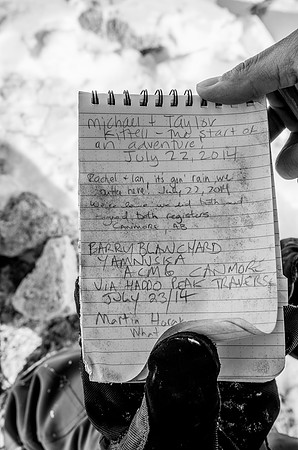 Michael + Taylor
Kittell - the start of
an adventure!
July 22, 2014
Rachel + Ian, its gin' rain we
outta here! July 22, 2014
we did both and
signed both registers
CANMORE AB
BARRY BLANCHARD
YAMNUSKA
ACMG CANMORE
VIA HADDO PEAK TRAVERSE
JULY 23/14
Martin
What